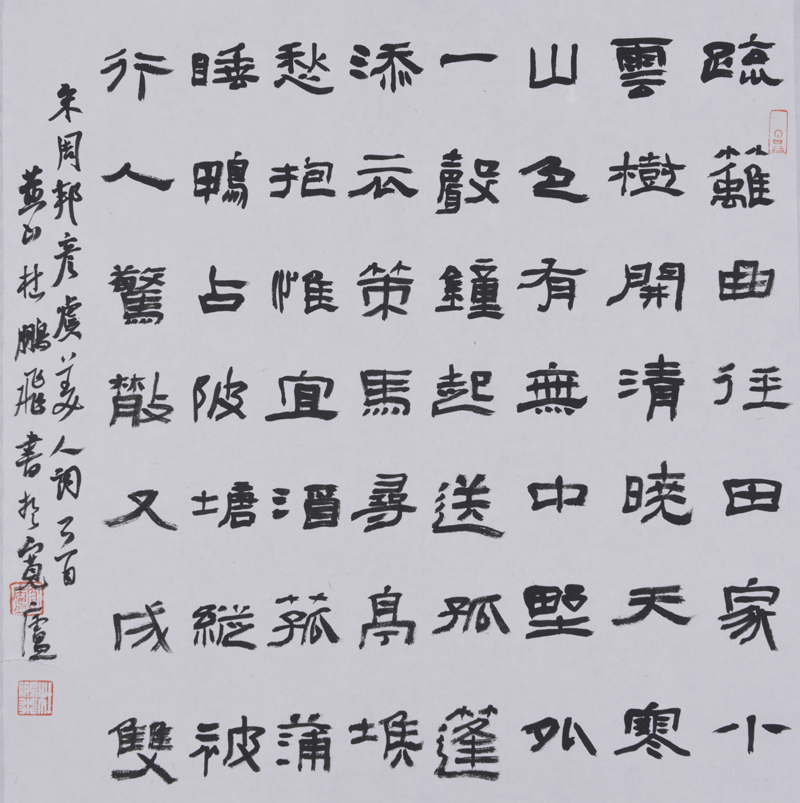 疏籬曲徑田家小
雲樹開清曉天寒
山色有無中野外
一聲鐘起送孤蓬
添衣策馬尋亭堠
愁抱惟宜酒菰蒲
睡鴨占陂塘縱被
行人驚散又成雙
宋周邦彥虞美人詞
燕山杜鵬飛書於寬廬